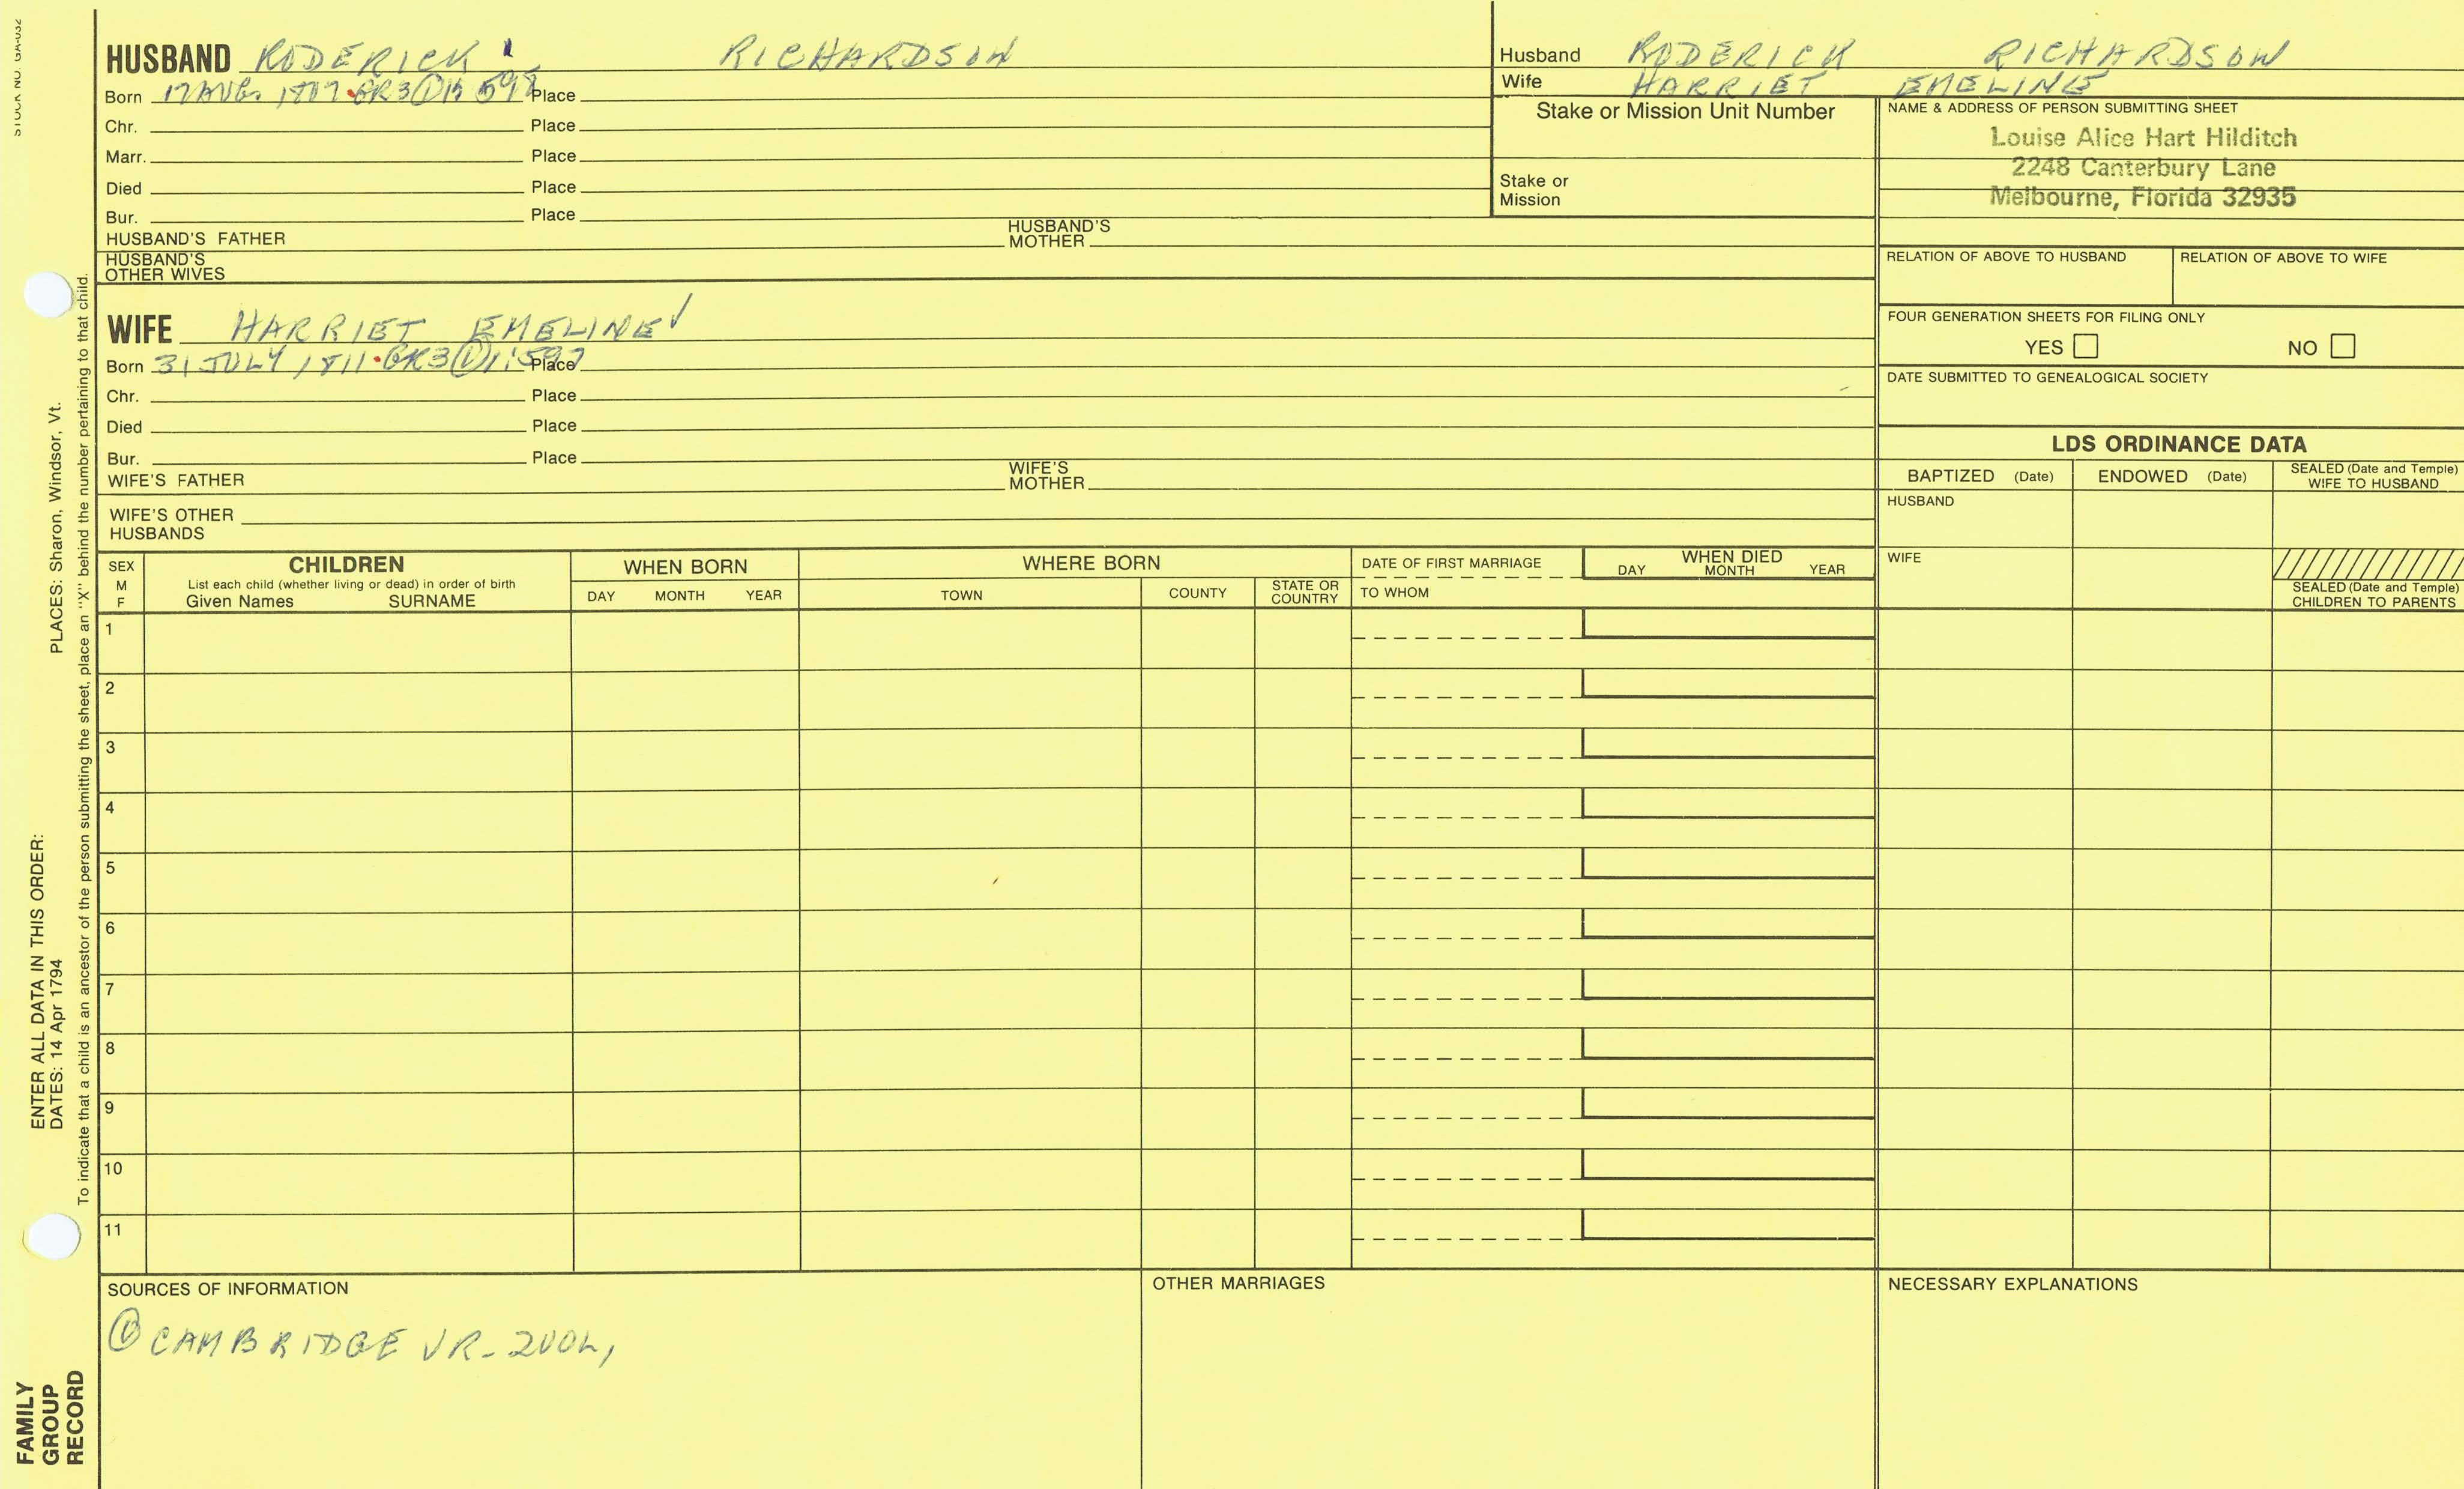 STOCK NO. GA-032
PLACES: Sharon, Windsor, Vt.
ENTER ALL DATA IN THIS ORDER:
DATES: 14 Apr 1794
To indicate that a child is an ancestor of the person submitting the sheet, place an "X" behind the number pertaining to that child.
FAMILY
GROUP
RECORD
HUSBAND RODERICK RICHARDSON
Born 17 AUG. Place
Chr. Place
Marr. Place
Died Place
Bur. Place
HUSBAND'S FATHER HUSBAND'S MOTHER
HUSBAND'S
OTHER WIVES
Husband RODERICK RICHARDSON
Wife HARRIET EMELINE
Stake or Mission Unit Number
Stake or
Mission
NAME & ADDRESS OF PERSON SUBMITTING SHEET
Louise Alice Hart Hilditch
2248 Canterbury Lane
Melbourne, Florida 32935
RELATION OF ABOVE TO HUSBAND RELATION OF ABOVE TO WIFE
FOUR GENERATION SHEETS FOR FILING ONLY
YES NO
DATE SUBMITTED TO GENEALOGICAL SOCIETY
WIFE HARRIET EMELINE ✓
Born 31 JULY 1811 · GR3 Place
Chr. Place
Died Place
Bur. Place
WIFE'S FATHER WIFE'S MOTHER
WIFE'S OTHER
HUSBANDS
LDS ORDINANCE DATA
BAPTIZED (Date) ENDOWED (Date) SEALED (Date and Temple)
WIFE TO HUSBAND
HUSBAND
WIFE
SEALED (Date and Temple)
CHILDREN TO PARENTS
SEX
M
F
CHILDREN
List each child (whether living or dead) in order of birth
Given Names SURNAME
WHEN BORN
DAY MONTH YEAR
WHERE BORN
TOWN COUNTY STATE OR
COUNTRY
DATE OF FIRST MARRIAGE
TO WHOM
WHEN DIED
DAY MONTH YEAR
1
2
3
4
5
6
7
8
9
10
11
SOURCES OF INFORMATION
CAMBRIDGE VR-
OTHER MARRIAGES
NECESSARY EXPLANATIONS